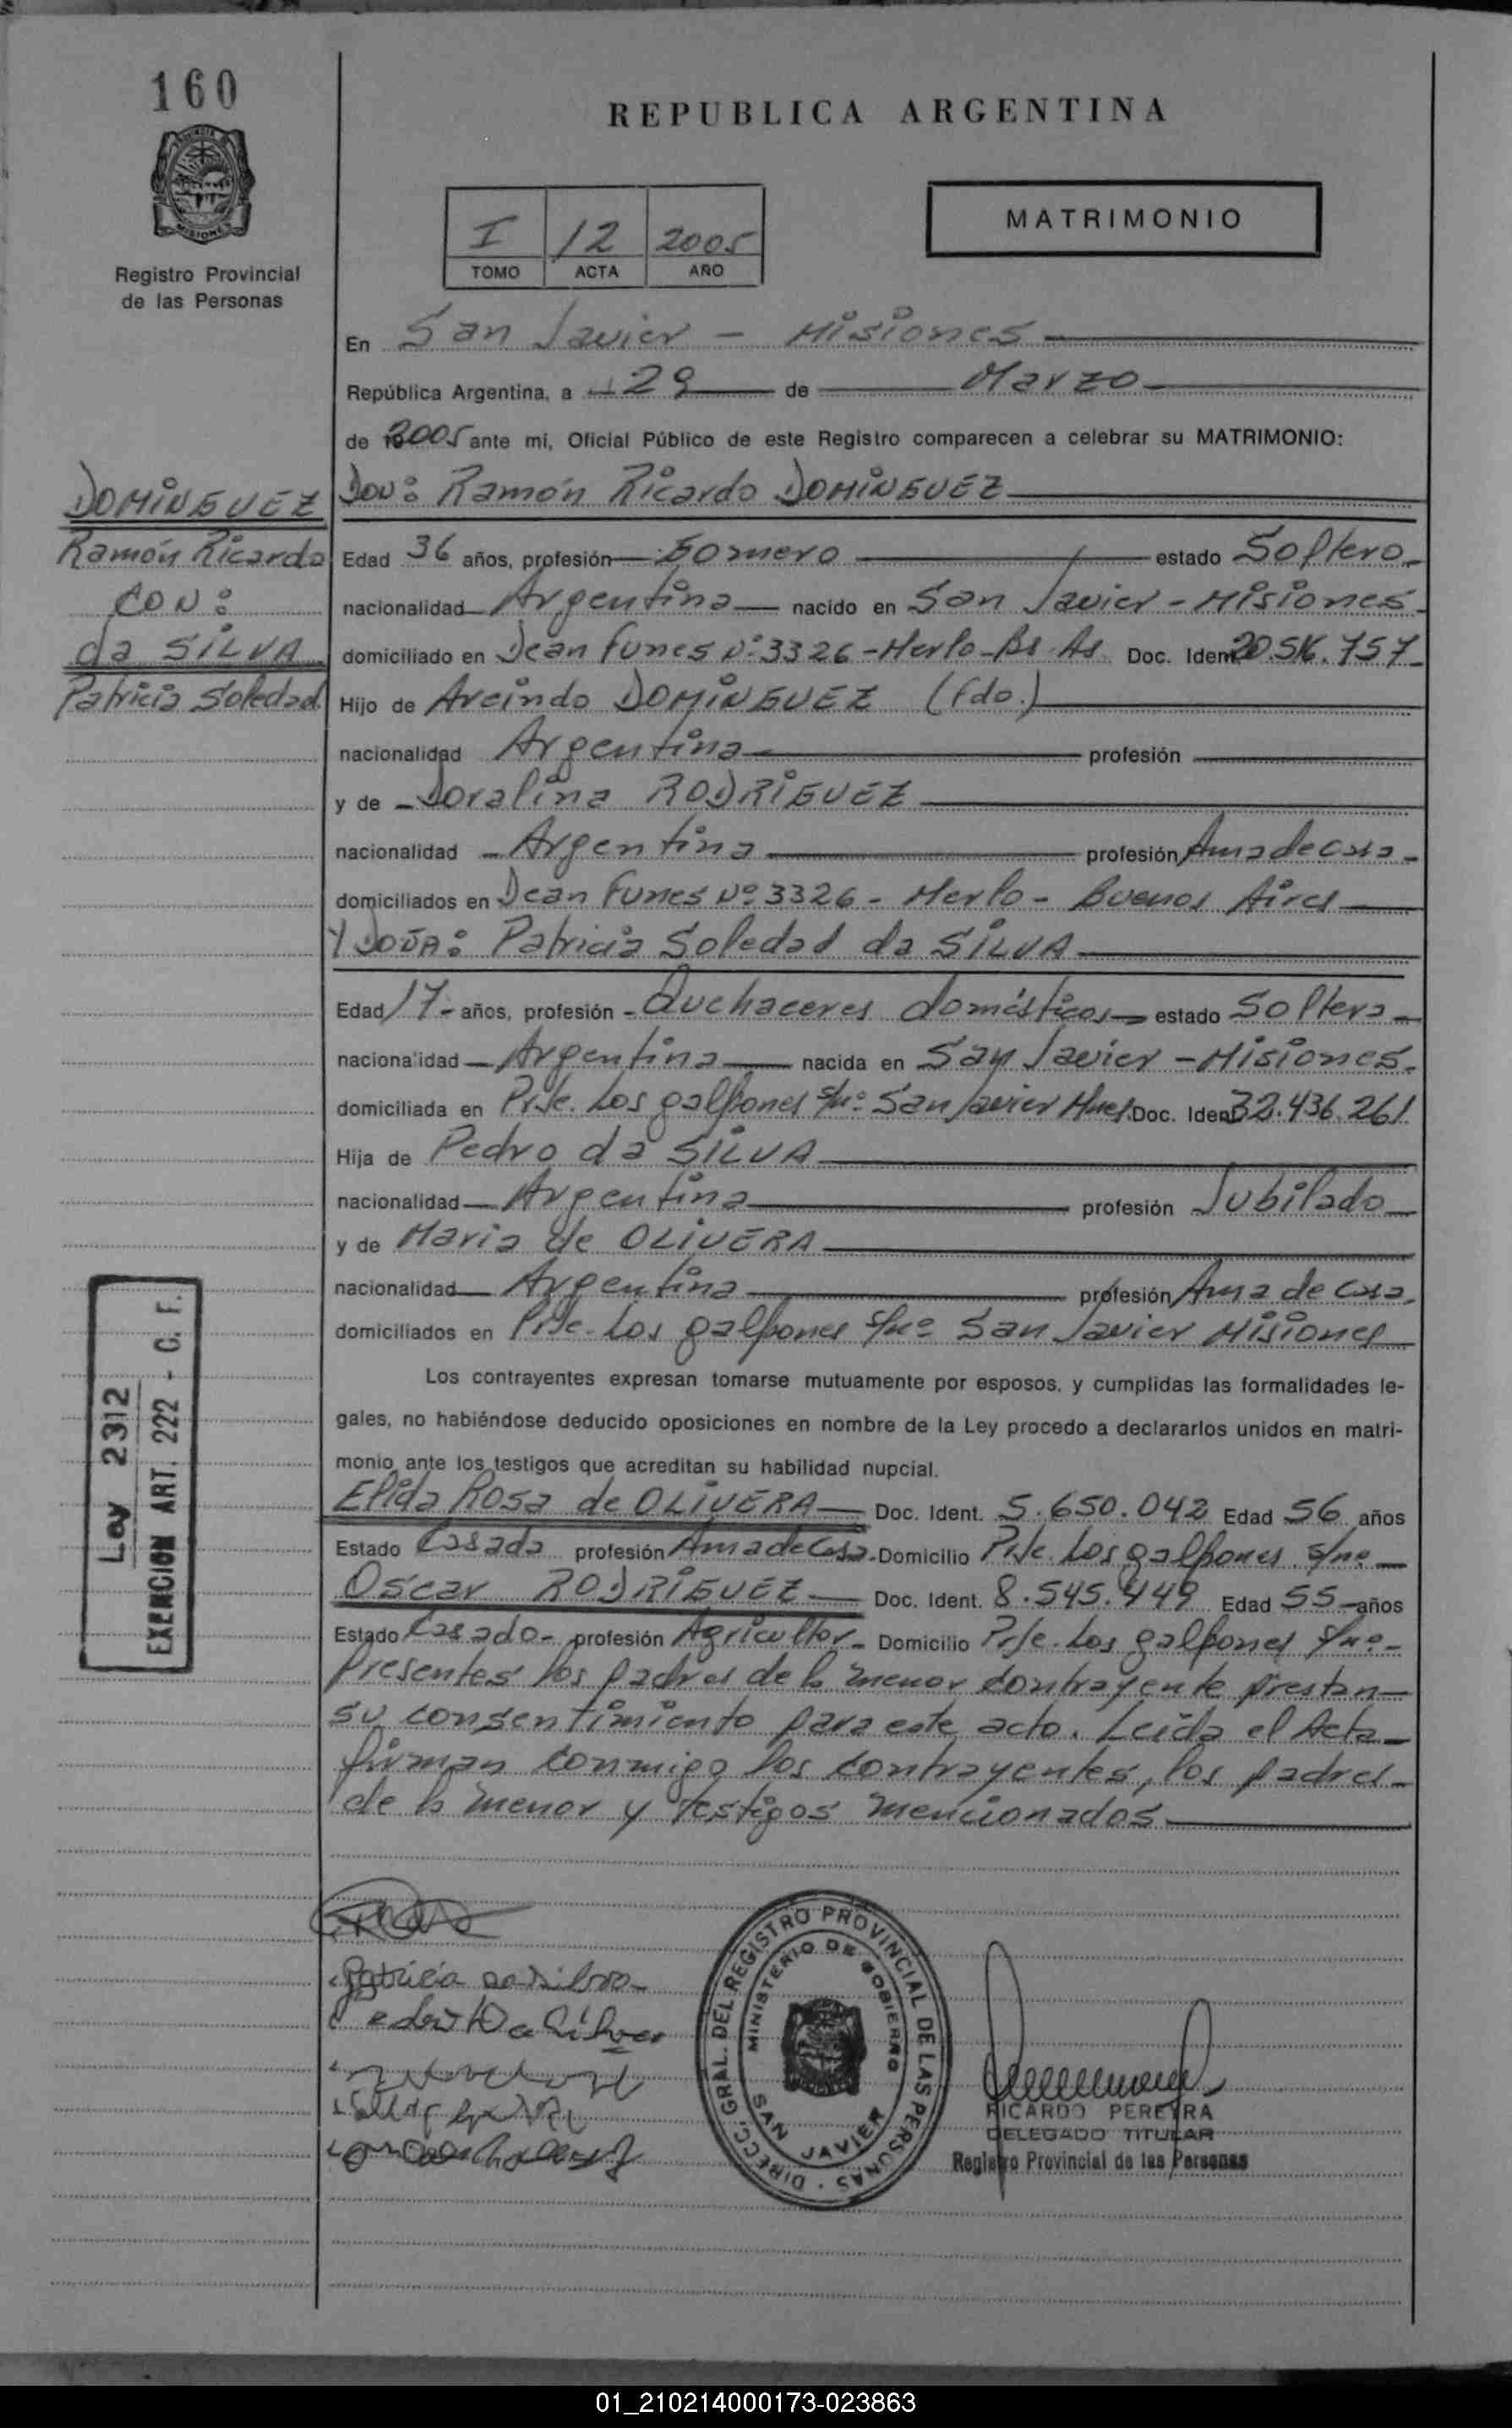 160
REPUBLICA ARGENTINA
I 12 2005
TOMO ACTA AÑO
MATRIMONIO
Registro Provincial
de las Personas
En San Javier - Misiones
República Argentina, a 29 de Marzo
de 2005 ante mi, Oficial Público de este Registro comparecen a celebrar su MATRIMONIO:
DOMINGUEZ
Ramón Ricardo
CON:
da SILVA
Patricia Soledad
Don: Ramón Ricardo DOMINGUEZ
Edad 36 años, profesión Gomero estado Soltero
nacionalidad Argentina nacido en San Javier - Misiones
domiciliado en Dean Funes Nº 3326 - Merlo - Bs As Doc. Ident 20.516.757
Hijo de Arcindo DOMINGUEZ (fdo.)
nacionalidad Argentina profesión
y de Doralina RODRIGUEZ
nacionalidad Argentina profesión Ama de casa
domiciliados en Dean Funes Nº 3326 - Merlo - Buenos Aires
Y DOÑA: Patricia Soledad da SILVA
Edad 17 años, profesión Quehaceres domésticos estado Soltera
nacionalidad Argentina nacida en San Javier - Misiones
domiciliada en Pje. Los galpones s/nº San Javier Mnes. Doc. Ident 32.436.261
Hija de Pedro da SILVA
nacionalidad Argentina profesión Jubilado
y de Maria de OLIVERA
nacionalidad Argentina profesión Ama de casa
domiciliados en Pje. Los galpones s/nº San Javier Misiones
Los contrayentes expresan tomarse mutuamente por esposos, y cumplidas las formalidades le-
gales, no habiéndose deducido oposiciones en nombre de la Ley procedo a declararlos unidos en matri-
monio ante los testigos que acreditan su habilidad nupcial.
Elida Rosa de OLIVERA Doc. Ident. 5.650.042 Edad 56 años
Estado Casada profesión Ama de Casa Domicilio Pje. Los galpones s/nº
Oscar RODRIGUEZ Doc. Ident. 8.545.449 Edad 55 años
Estado Casado profesión Agricultor Domicilio Pje. Los galpones s/nº
Presentes los padres de la menor contrayente prestan
su consentimiento para este acto. Leída el Acta
firman conmigo los contrayentes, los padres
de la menor y testigos mencionados
Ley 2312
EXENCION ART. 222 - C. F.
Patricia da Silva
DIRECC. GRAL. DEL REGISTRO PROVINCIAL DE LAS PERSONAS
MINISTERIO DE GOBIERNO
SAN JAVIER
RICARDO PEREYRA
DELEGADO TITULAR
Registro Provincial de las Personas
01_210214000173-023863